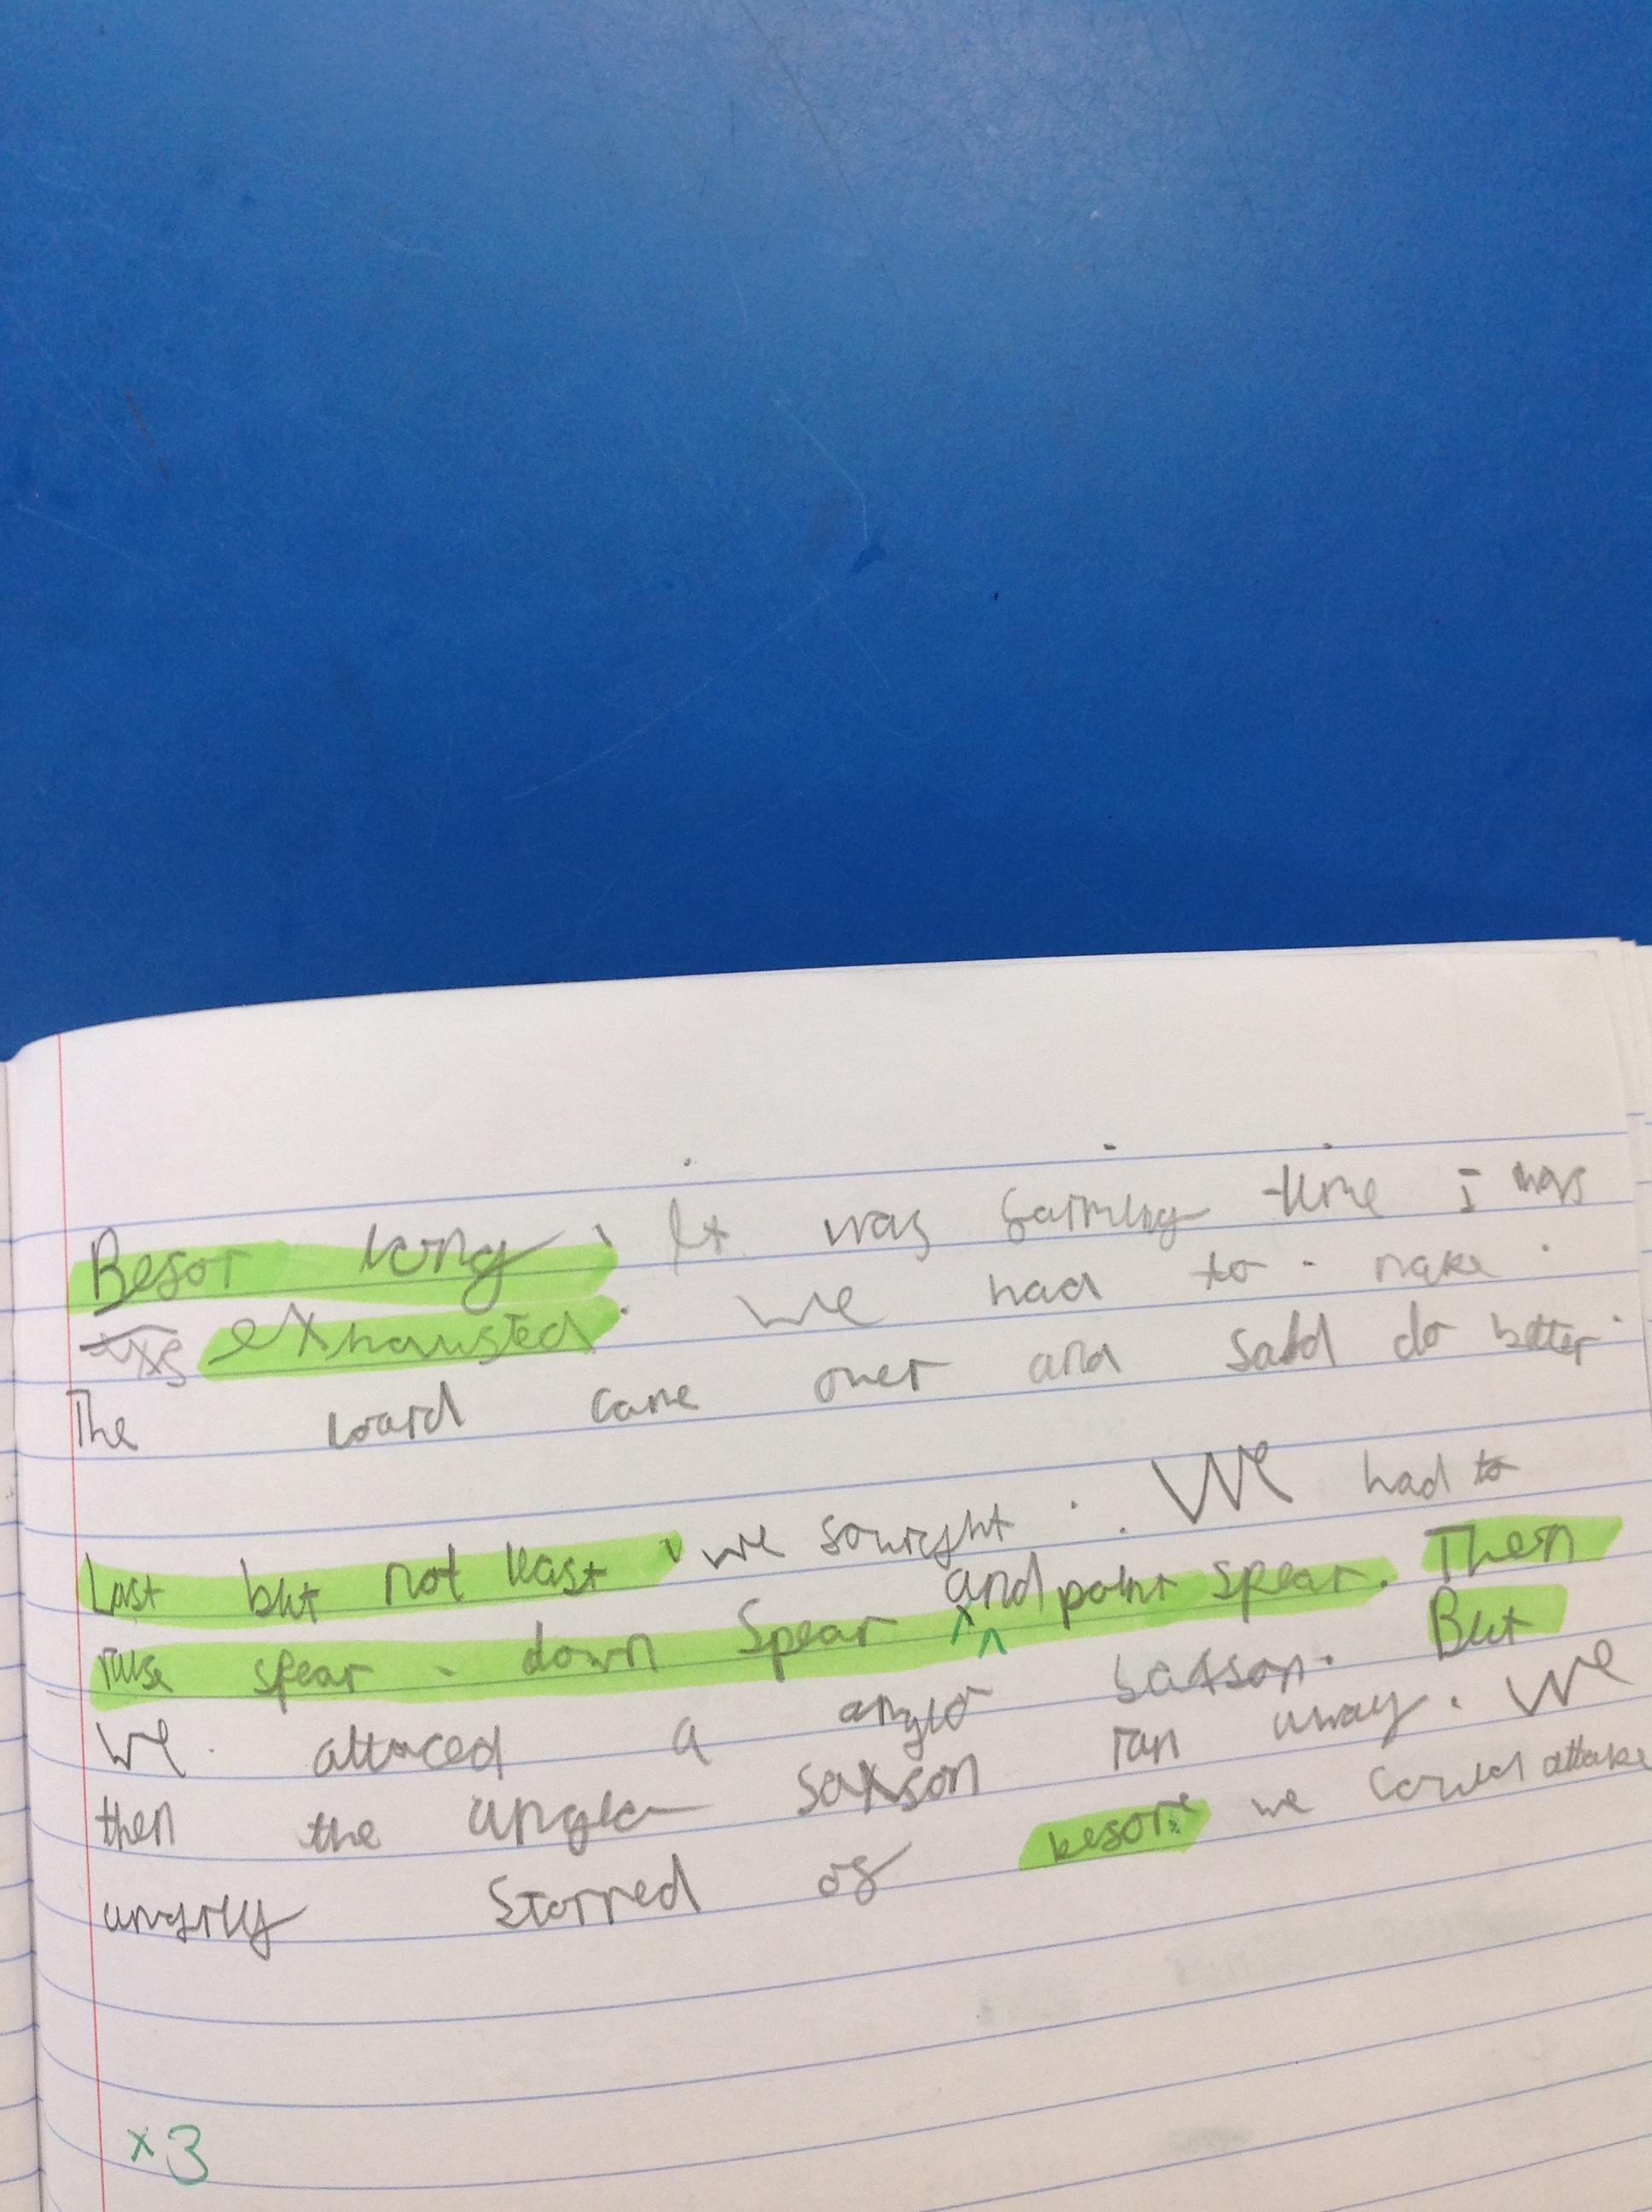 Befor long, It was farming time I was
exs exhausted. We had to. make.
The loard came over and said do better.
Last but not least, we fourght. We had to
raise spear. down spear and point spear. Then
We. attaced a anglo saxson. But
then the anglo saxson ran away. We
angrily storred of before we could attake
x3